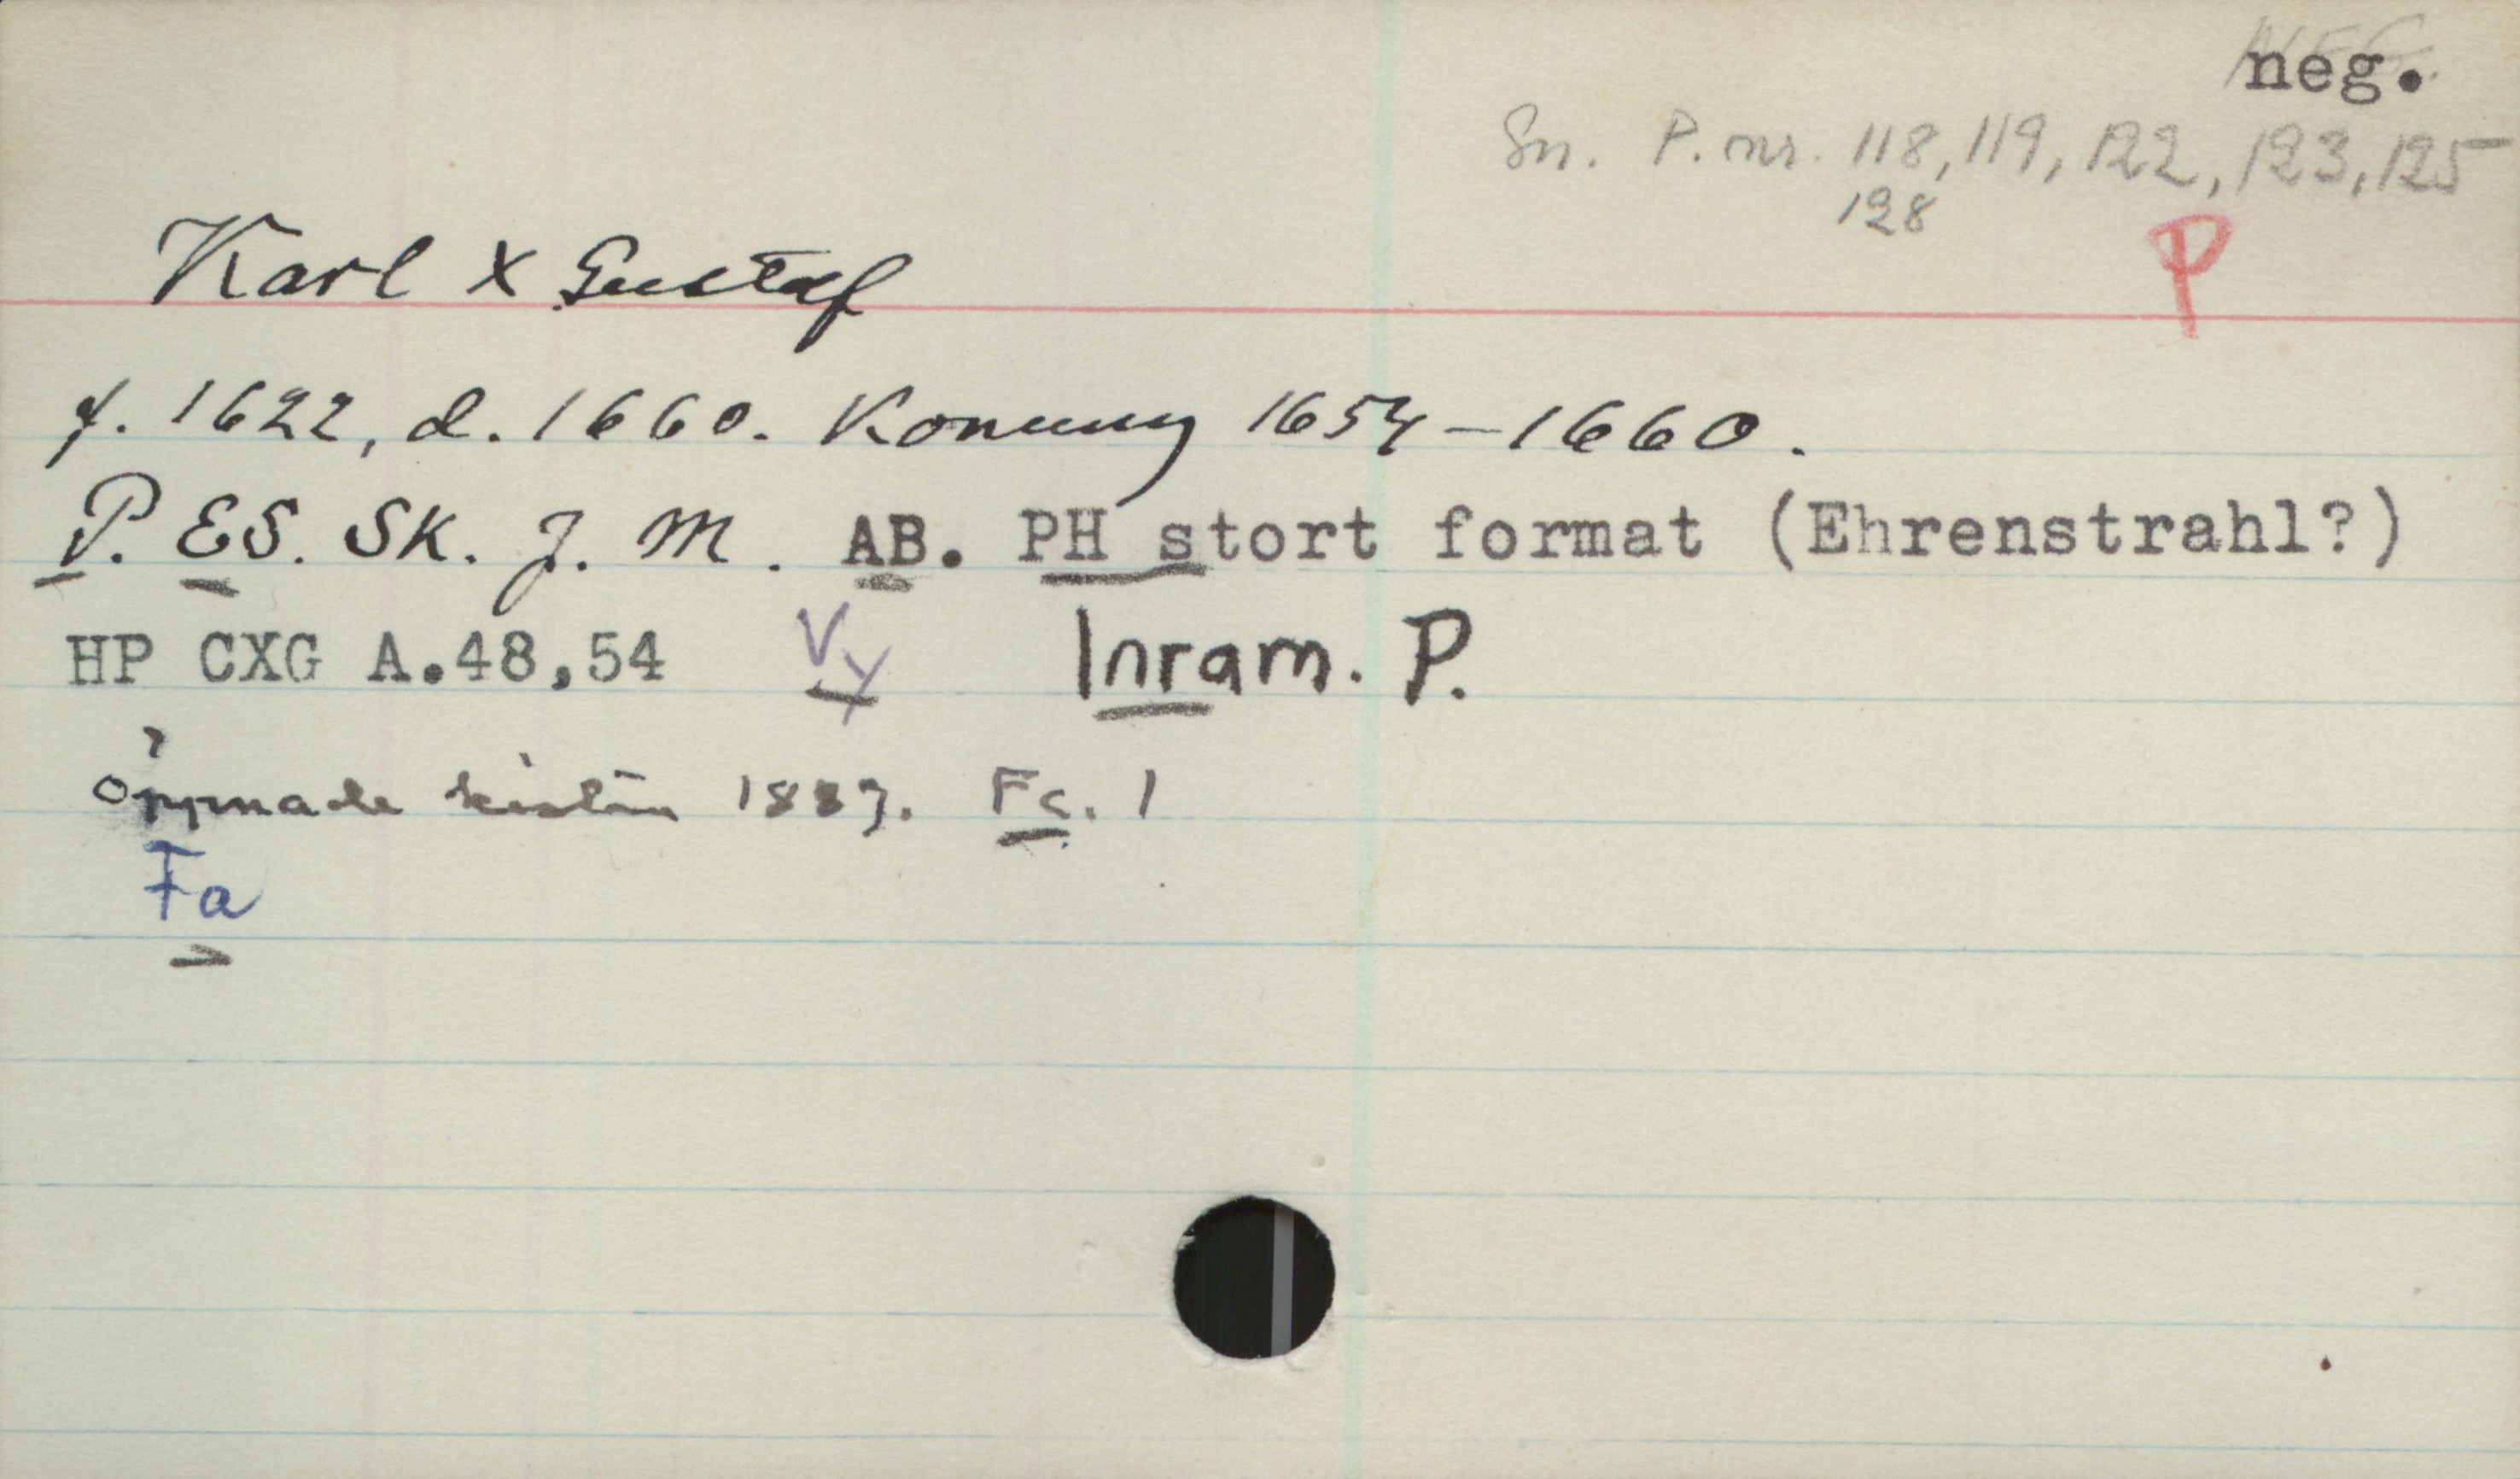 neg.
Sn. P. nr. 118, 119, 122, 123, 125
128
P
Karl X Gustaf
f. 1622, d. 1660. Konung 1654–1660.
P. ES. SK. J. M. AB. PH stort format (Ehrenstrahl?)
HP CXG A.48,54 Vy Inram. P.
öppnade kistan Fc. 1
Fa